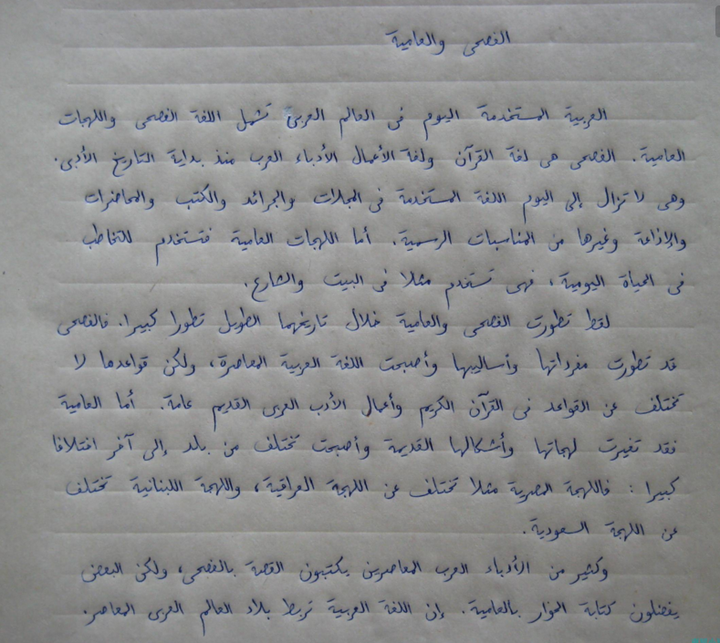 الفصحى والعامية
العربية المستخدمة اليوم فى العالم العربى تشمل اللغة الفصحى واللهجات
العامية. الفصحى هى لغة القرآن ولغة الأعمال الأدباء العرب منذ بداية التاريخ الأدبى.
وهى لا تزال إلى اليوم اللغة المستخدمة فى المجلات والجرائد والكتب والمحاضرات
والإذاعة وغيرها من المناسبات الرسمية. أما اللهجات العامية فتستخدم للتخاطب
فى الحياة اليومية، فهى تستخدم مثلا فى البيت والشارع.
لقط تطورت الفصحى والعامية خلال تاريخهما الطويل تطورا كبيرا. فالفصحى
قد تطورت مفرداتها وأساليبها وأصبحت اللغة العربية المعاصرة، ولكن قواعدها لا
تختلف عن القواعد فى القرآن الكريم وأعمال الأدب العربى القديم عامة. أما العامية
فقد تغيرت لهجاتها وأشكالها القديمة وأصبحت تختلف من بلد إلى آخر اختلافا
كبيرا: فاللهجة المصرية مثلا تختلف عن اللهجة العراقية، واللهجة اللبنانية تختلف
عن اللهجة السعودية.
وكثير من الأدباء العرب المعاصرين يكتبون القصة بالفصحى، ولكن البعض
يفضلون كتابة الحوار بالعامية. إن اللغة العربية تربط بلاد العالم العربى المعاصر.